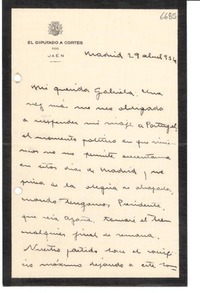 6685
EL DIPUTADO A CORTES
POR
JAEN
Madrid 29 abril 936
Mi querida Gabriela. Una
vez más me veo obligado
a suspender mi viaje a Portugal;
el momento político en que vi-
vimos no me permite ausentarme
en estos días de Madrid y me
priva de la alegría de abrazarla,
cuando tengamos Presidente,
que será Azaña, tomaré el tren
cualquier final de semana.
Nuestro partido hace el sacrifi-
cio máximo dejando a este